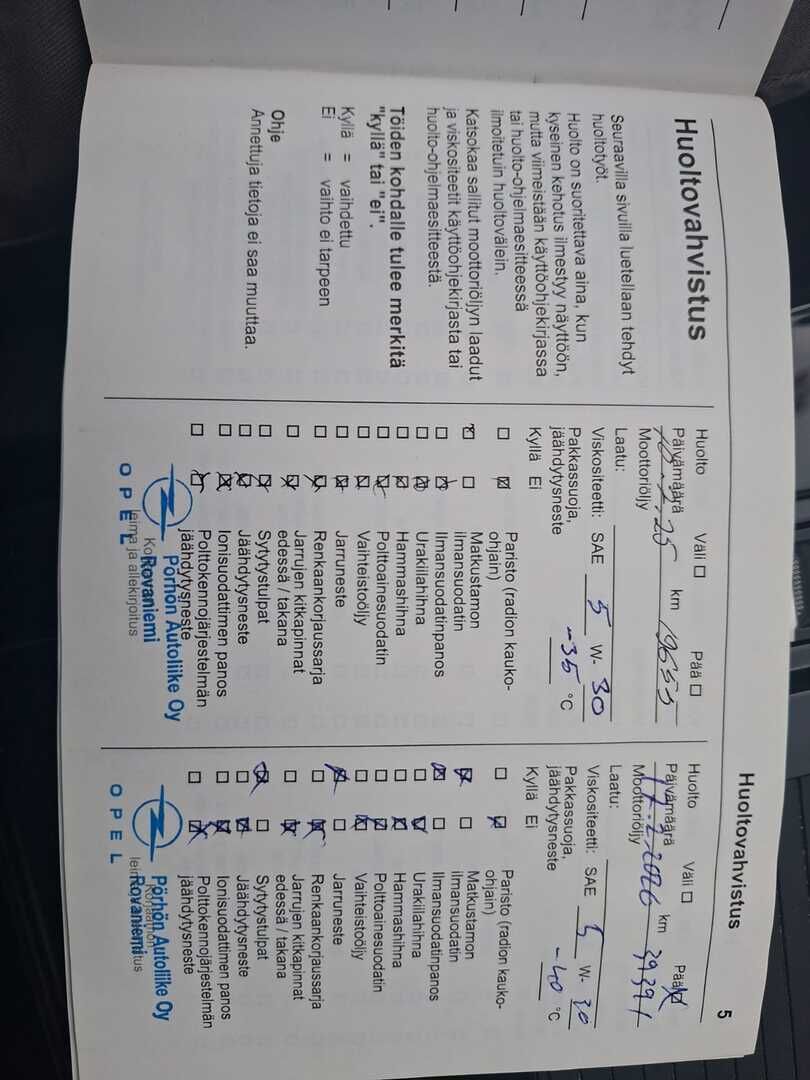 Huoltovahvistus
Seuraavilla sivuilla luetellaan tehdyt
huoltotyöt.
Huolto on suoritettava aina, kun
kyseinen kehotus ilmestyy näyttöön,
mutta viimeistään käyttöohjekirjassa
tai huolto-ohjelmaesitteessä
ilmoitetuin huoltovälein.
Katsokaa sallitut moottoriöljyn laadut
ja viskositeetit käyttöohjekirjasta tai
huolto-ohjelmaesitteestä.
Töiden kohdalle tulee merkitä
"kyllä" tai "ei".
Kyllä = vaihdettu
Ei = vaihto ei tarpeen
Ohje
Annettuja tietoja ei saa muuttaa.
Huolto Väli Pää
Päivämäärä km 19653
Moottoriöljy
Laatu:
Viskositeetti: SAE 5 W- 30
Pakkassuoja,
jäähdytysneste -35 °C
Kyllä Ei
Paristo (radion kauko-
ohjain)
Matkustamon
ilmansuodatin
Ilmansuodatinpanos
Urakiilahihna
Hammashihna
Polttoainesuodatin
Vaihteistoöljy
Jarruneste
Renkaankorjaussarja
Jarrujen kitkapinnat
edessä / takana
Sytytystulpat
Jäähdytysneste
Ionisuodattimen panos
Polttokennojärjestelmän
jäähdytysneste
Pörhön Autoliike Oy
Rovaniemi
leima ja allekirjoitus
OPEL
Huoltovahvistus 5
Huolto Väli Pää
Päivämäärä 17.2.2026 km 39391
Moottoriöljy
Laatu:
Viskositeetti: SAE 5 W- 30
Pakkassuoja,
jäähdytysneste -40 °C
Kyllä Ei
Paristo (radion kauko-
ohjain)
Matkustamon
ilmansuodatin
Ilmansuodatinpanos
Urakiilahihna
Hammashihna
Polttoainesuodatin
Vaihteistoöljy
Jarruneste
Renkaankorjaussarja
Jarrujen kitkapinnat
edessä / takana
Sytytystulpat
Jäähdytysneste
Ionisuodattimen panos
Polttokennojärjestelmän
jäähdytysneste
Pörhön Autoliike Oy
Korjaamon
Rovaniemi
OPEL